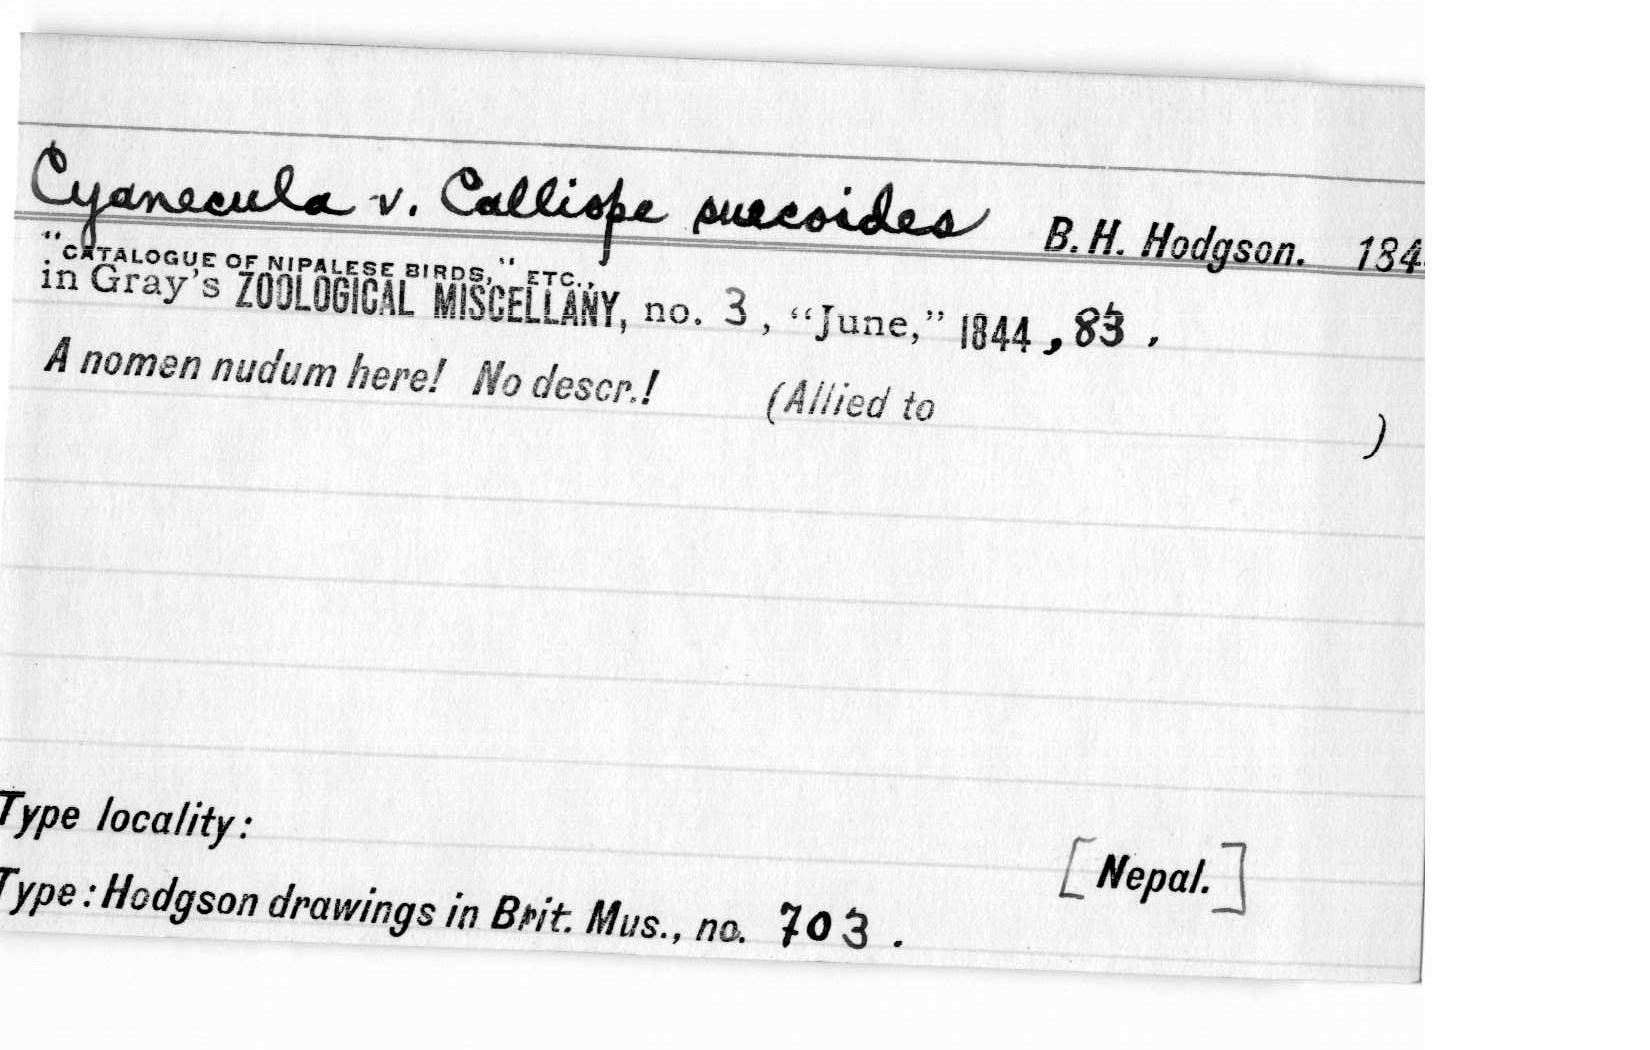 Cyanecula v. Calliope suecoides B. H. Hodgson. 184
"CATALOGUE OF NIPALESE BIRDS," ETC.,
in Gray's ZOOLOGICAL MISCELLANY, no. 3, "June," 1844, 83.
A nomen nudum here! No descr.! (Allied to )
Type locality: [Nepal.]
Type: Hodgson drawings in Brit. Mus., no. 703.